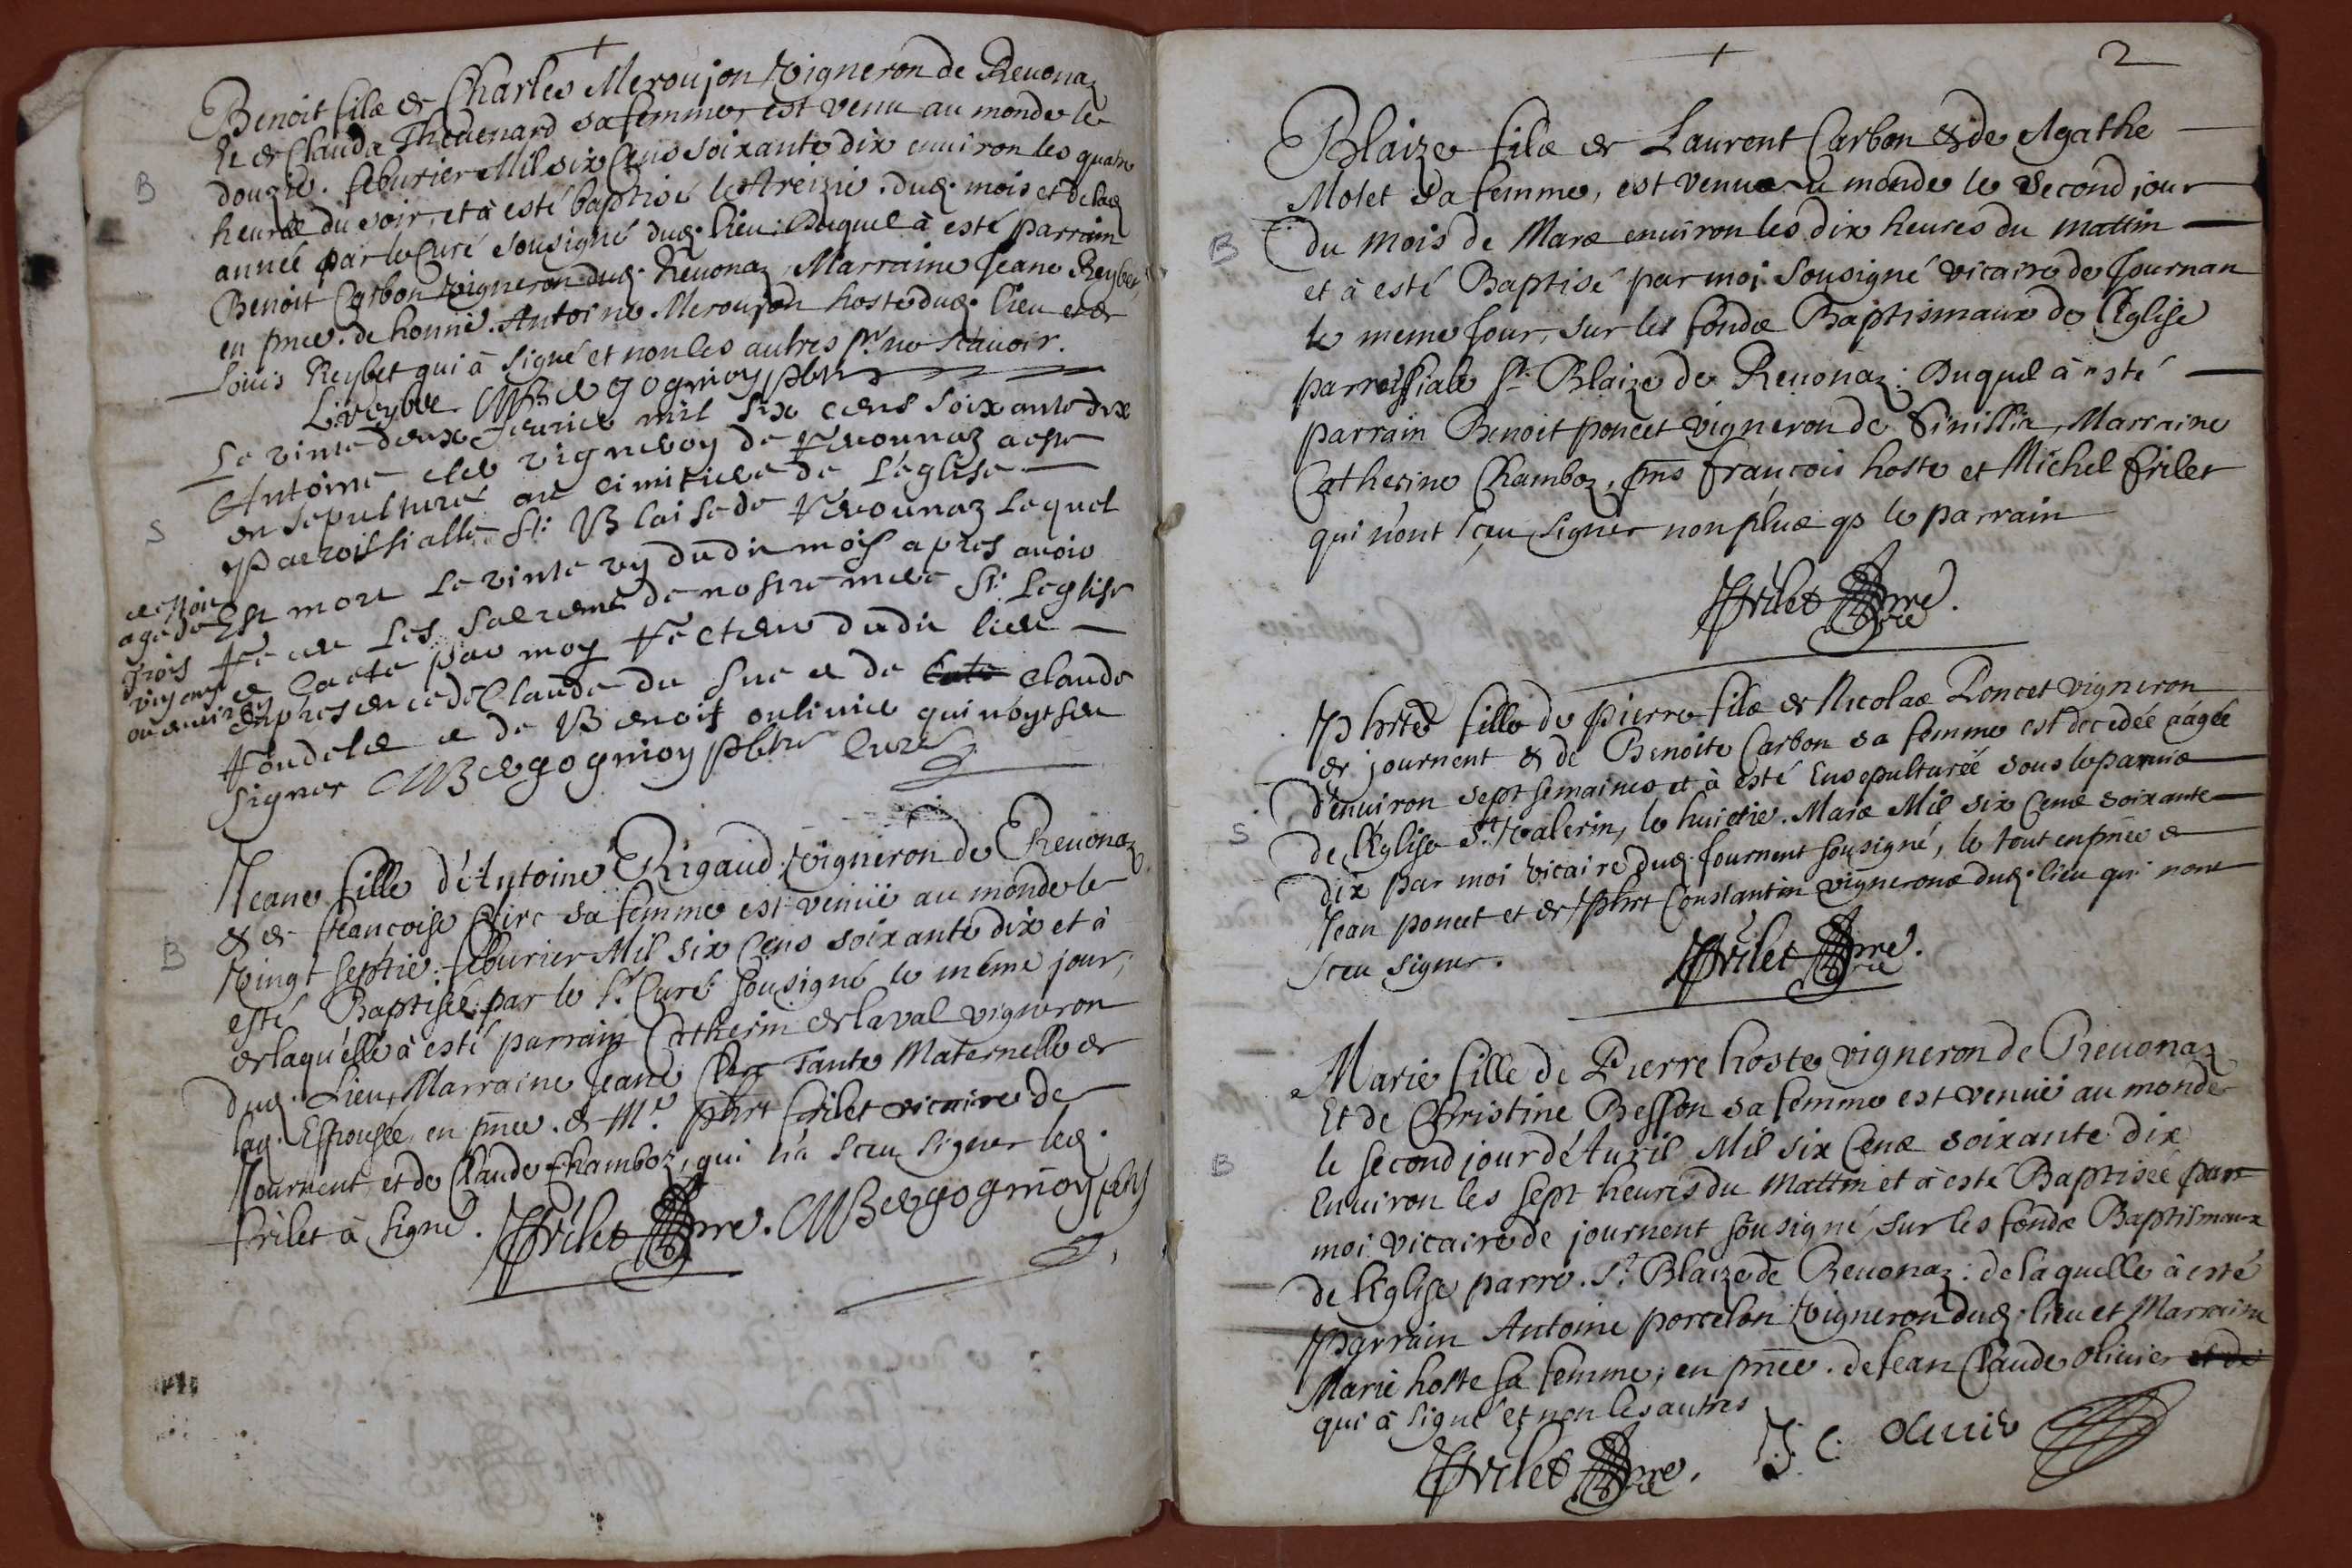 +
Benoit filz de Charles Meroujon Vigneron de Reuonaz
Et de Clauda Theuenard sa femme est venu au monde le
B
douzie. feburier Mil six Cens soixante dix enuiron les quatre
heures du soir, et à esté baptisé le treizie. dud. mois et de lad.
année par le Curé sousigné dud. lieu: Duquel à esté parrain
Benoit Carbon Vigneron dud. Reuonaz, Marraine Jeane Reybet,
en pnce. de honne. Antoine Meroujon hoste dud. lieu et de
Loüis Reybet qui à signé et non les autres pr. ne scauoir.
L. reybet MBergognioy pbtr
Le vinte deux feurier mil six cens soixante dix
Antoine vigneron de Reuonnaz a este
S
ensepulturé au cimitiere de l'eglise
Parroissialle St. Blaise de Reuonnaz lequel
Est mort le vinte vng dudit mois apres auoir
age de
trois
vingt ans
ou enuiron
Receu les sacremens de nostre mere Ste. leglise
et l'acte par moy Recteur dudit lieu
en presence de Claude du suc et de Claude
fondeta et de Benoist oliuier qui n'ont seu
signer MBergognioy pbtr Curé
Jeane fille d'Antoine Rigaud Vigneron de Reuonaz
& de francoise Clerc sa femme est venüe au monde le
B
Vingt septie. feburier Mil six Cens soixante dix et à
esté Baptisée par le Sr. Curé sousigné le méme jour;
de laquelle à esté parrain Catherin de laval vigneron
dud. Lieu, Marraine Jeane Clerc Tante Maternelle de
lad. Espousée, en pnce. de Mre. phrt frilet vicaire de
Journent, et de Claude Chamboz, qui n'a sceu signer led.
frilet à signé. Frilet pre. MBergognioy pbtr
+
2
Blaize filz de Laurent Carbon & de Agathe
Molet sa femme, est venu au monde le second jour
B
du mois de Mars enuiron les dix heures du mattin
et à esté Baptisé par moi sousigné vicaire de Journan
le meme jour, sur les fonds Baptismaux de l'Eglise
parroissiale St. Blaize de Reuonaz: Duquel à esté
parrain Benoit poncet Vigneron de Simillia, Marraine
Catherine Chamboz, pns francois hoste et Michel frilet
qui n'ont sceu signer non plus q. le parrain
Frilet pre.
Phrte fille de pierre filz de Nicolas Poncet vigneron
de journent & de Benoite Carbon sa femme est decedée aâgée
d'enuiron sept semaines et à esté Ensepulturée sous le paruis
S
de l'Eglise St. Valerin, le huictie. Mars Mil six Cens soixante
dix par moi vicaire dud. Journent sousigné, le tout en pnce de
Jean poncet et de phrt Constantin vignerons dud. lieu qui n'ont
sceu signer. Frilet pre.
Marie fille de Pierre hoste vigneron de Reuonaz
Et de Christine Besson sa femme est venüe au monde
B
le second jour d'Auril Mil six Cens soixante dix
Enuiron les sept heures du Mattin et à esté Baptisée par
moi vicaire de journent sousigné, sur les fonds Baptismaux
de l'Eglise parro. St. Blaize de Reuonaz: de laquelle à esté
Parrain Antoine porcelon Vigneron dud. lieu et Marraine
Marie hoste sa femme; en pnce. de Jean Claude oliuier et de
qui à signé et non les autres
Frilet pre. J. C. Oliuier